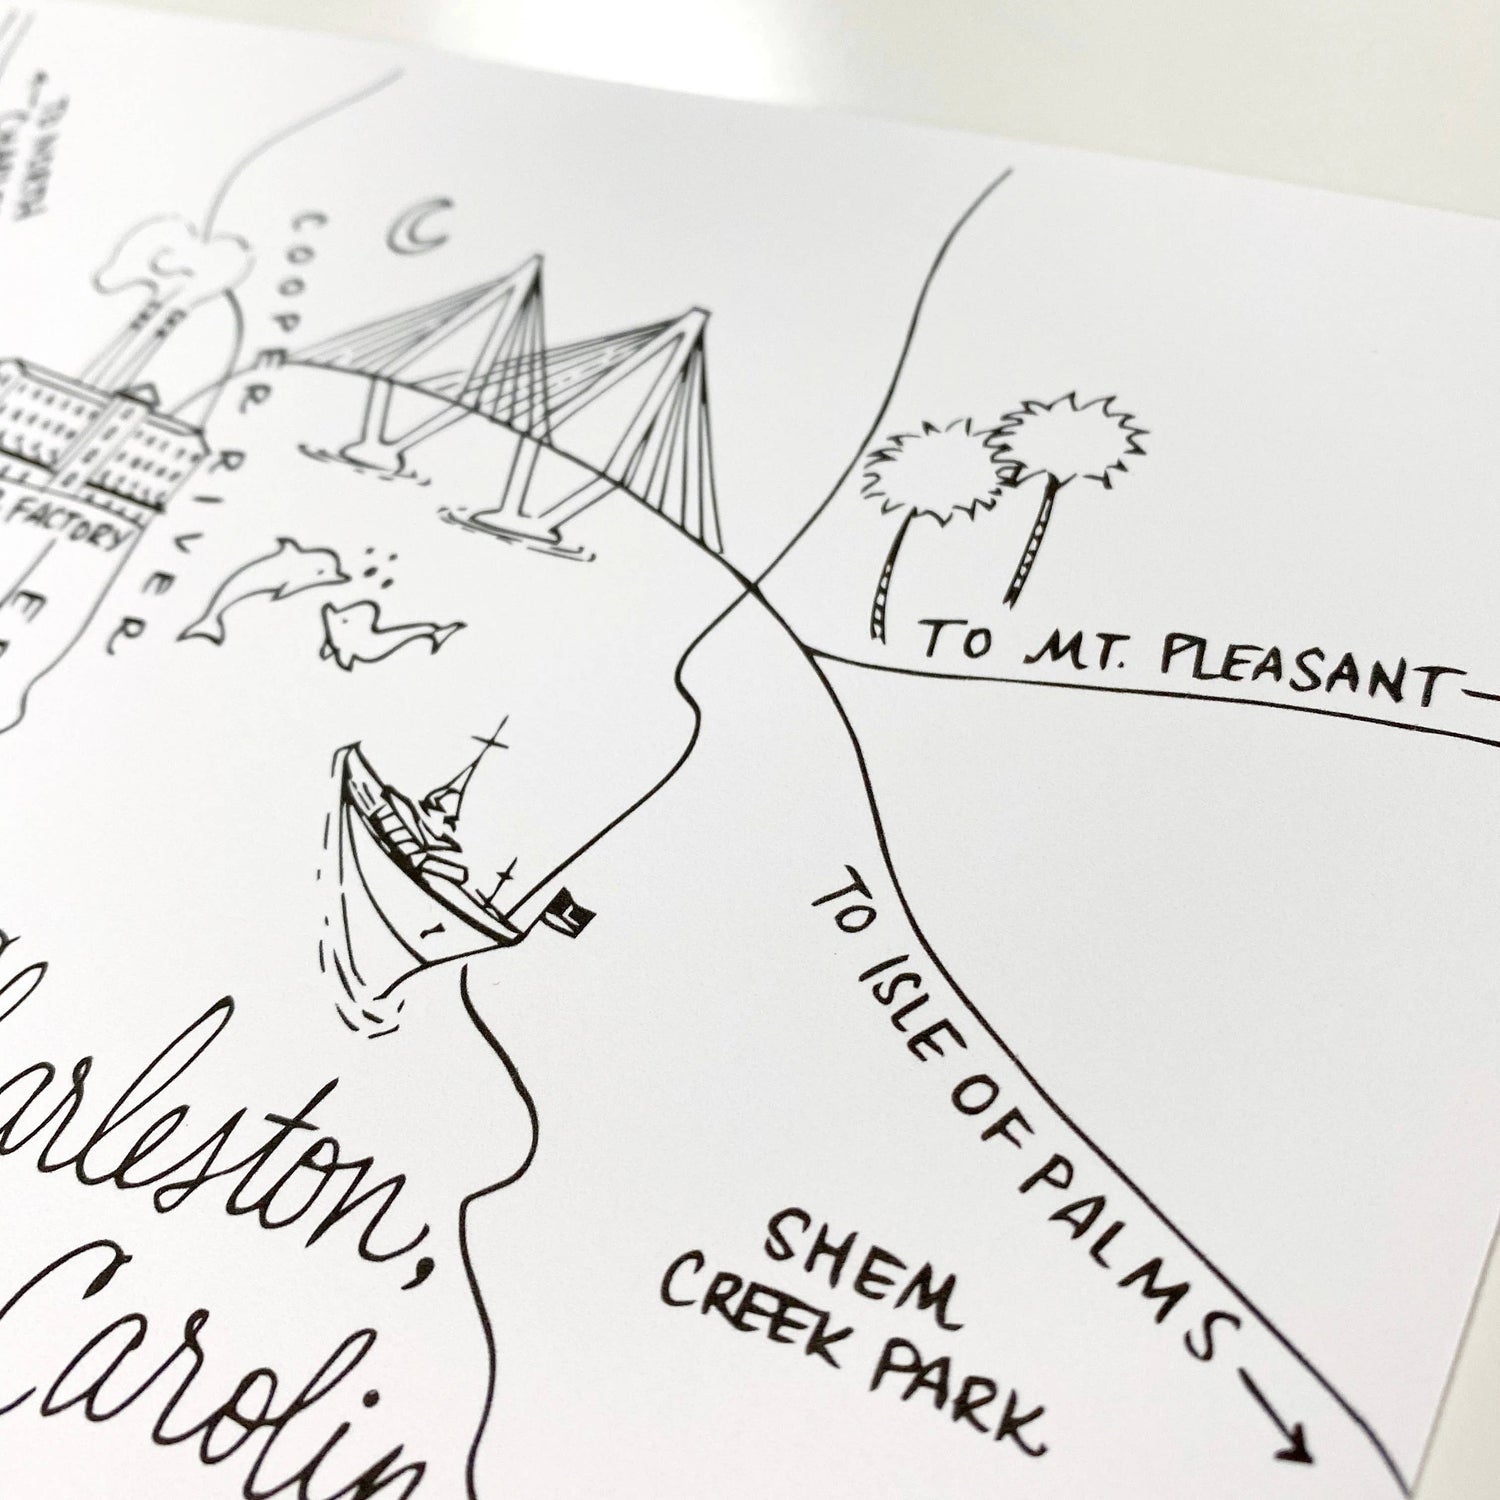 TO NORTH
COOPER RIVER
FACTORY
TO MT. PLEASANT
TO ISLE OF PALMS
SHEM
CREEK PARK
arleston,
Carolin